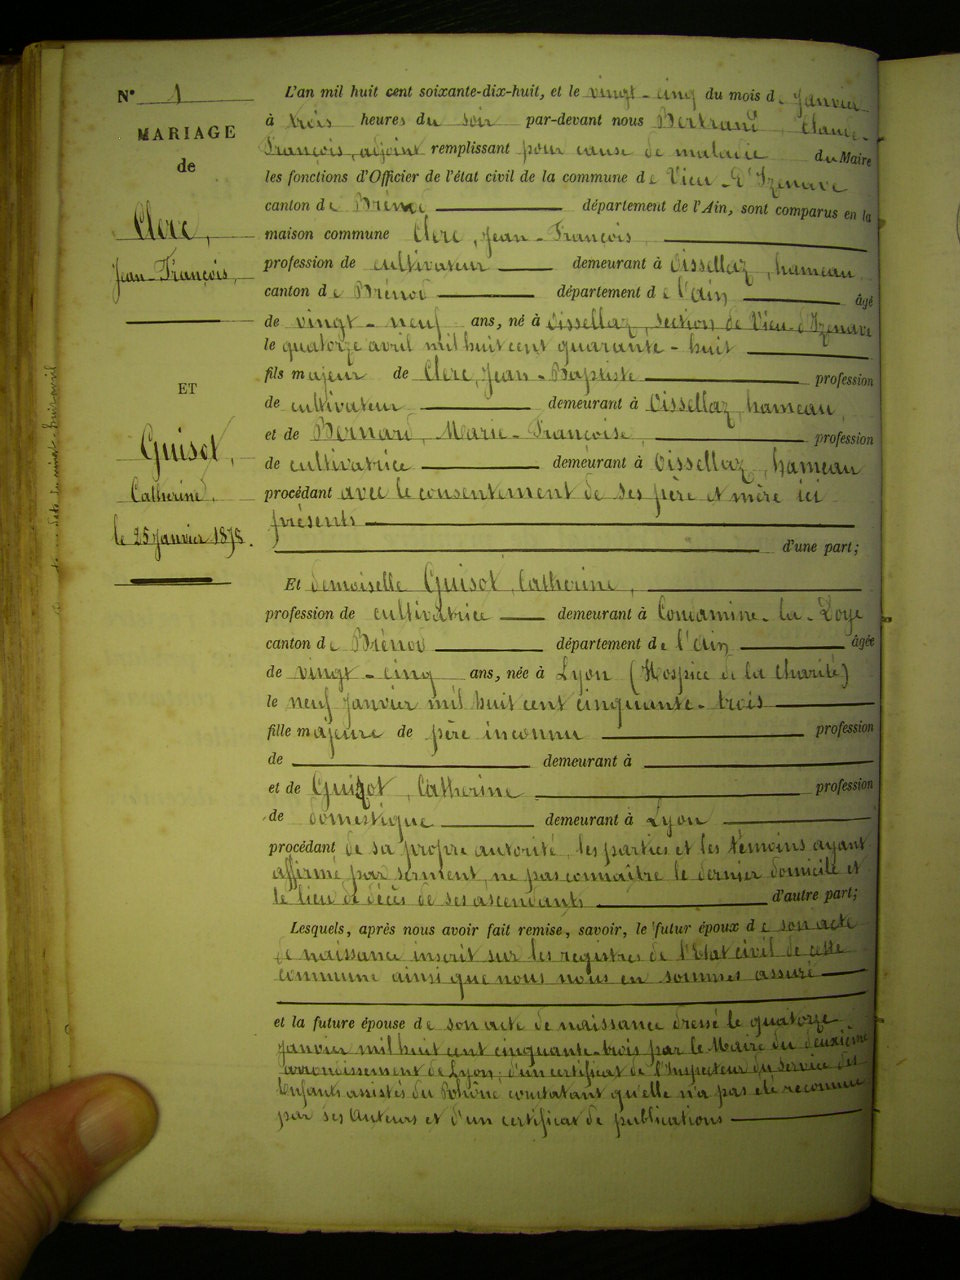 N° 1
MARIAGE
de
Clerc,
Jean-François,
ET
Guisot,
Catherine,
le 25 Janvier 1878.
L'an mil huit cent soixante-dix-huit, et le vingt-cinq du mois de Janvier
à trois heures du soir par-devant nous Bertrand, Claude-
François, adjoint remplissant pour cause de maladie du Maire
les fonctions d'Officier de l'état civil de la commune de Vieu-d'Izenave
canton de Brénod département de l'Ain, sont comparus en la
maison commune Clerc, Jean-François,
profession de cultivateur demeurant à Oissellaz, hameau
canton de Brénod département de l'Ain âgé
de vingt-neuf ans, né à Oissellaz, section de Vieu-d'Izenave
le quatorze avril mil huit cent quarante-huit
fils majeur de Clerc, Jean-Baptiste profession
de cultivateur demeurant à Oissellaz, hameau,
et de Bernard, Marie-Françoise, profession
de cultivatrice demeurant à Oissellaz, hameau
procédant avec le consentement de ses père et mère ici
présents
d'une part;
Et demoiselle Guisot, Catherine,
profession de cultivatrice demeurant à Condamine-la-Doye
canton de Brénod département de l'Ain âgée
de vingt-cinq ans, née à Lyon (Hospice de la Charité)
le neuf Janvier mil huit cent cinquante-trois
fille majeure de père inconnu profession
de demeurant à
et de Guizot, Catherine profession
de domestique demeurant à Lyon
procédant de sa propre autorité, les parties et les témoins ayant
affirmé par serment, ne pas connaître le dernier domicile et
le lieu de décès de ses ascendants d'autre part;
Lesquels, après nous avoir fait remise, savoir, le futur époux de son acte
de naissance inscrit sur les registres de l'Etat civil de cette
commune ainsi que nous nous en sommes assuré
et la future épouse de son acte de naissance dressé le quatorze
Janvier mil huit cent cinquante-trois par le Maire du deuxième
arrondissement de Lyon, d'un certificat de l'Inspecteur du Service des
Enfants assistés du Rhône constatant qu'elle n'a pas été reconnue
par ses Auteurs et d'un certificat de publications